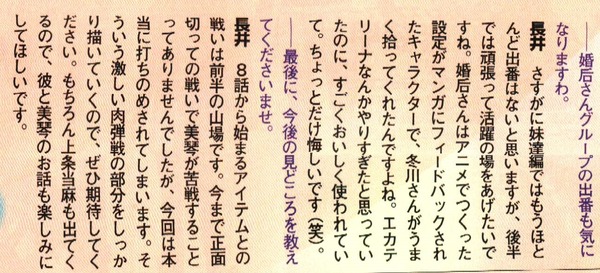 ――婚后さんグループの出番も気に
なりますわ。
長井　さすがに妹達編ではもうほと
んど出番はないと思いますが、後半
では頑張って活躍の場をあげたいで
すね。婚后さんはアニメでつくった
設定がマンガにフィードバックされ
たキャラクターで、冬川さんがうま
く拾ってくれたんですよね。エカテ
リーナなんかやりすぎたと思ってい
たのに、すごくおいしく使われてい
て。ちょっとだけ悔しいです（笑）。
――最後に、今後の見どころを教え
てくださいませ。
長井　８話から始まるアイテムとの
戦いは前半の山場です。今まで正面
切っての戦いで美琴が苦戦すること
ってありませんでしたが、今回は本
当に打ちのめされてしまいます。そ
ういう激しい肉弾戦の部分をしっか
り描いていくので、ぜひ期待してく
ださい。もちろん上条当麻も出てく
るので、彼と美琴のお話も楽しみに
してほしいです。